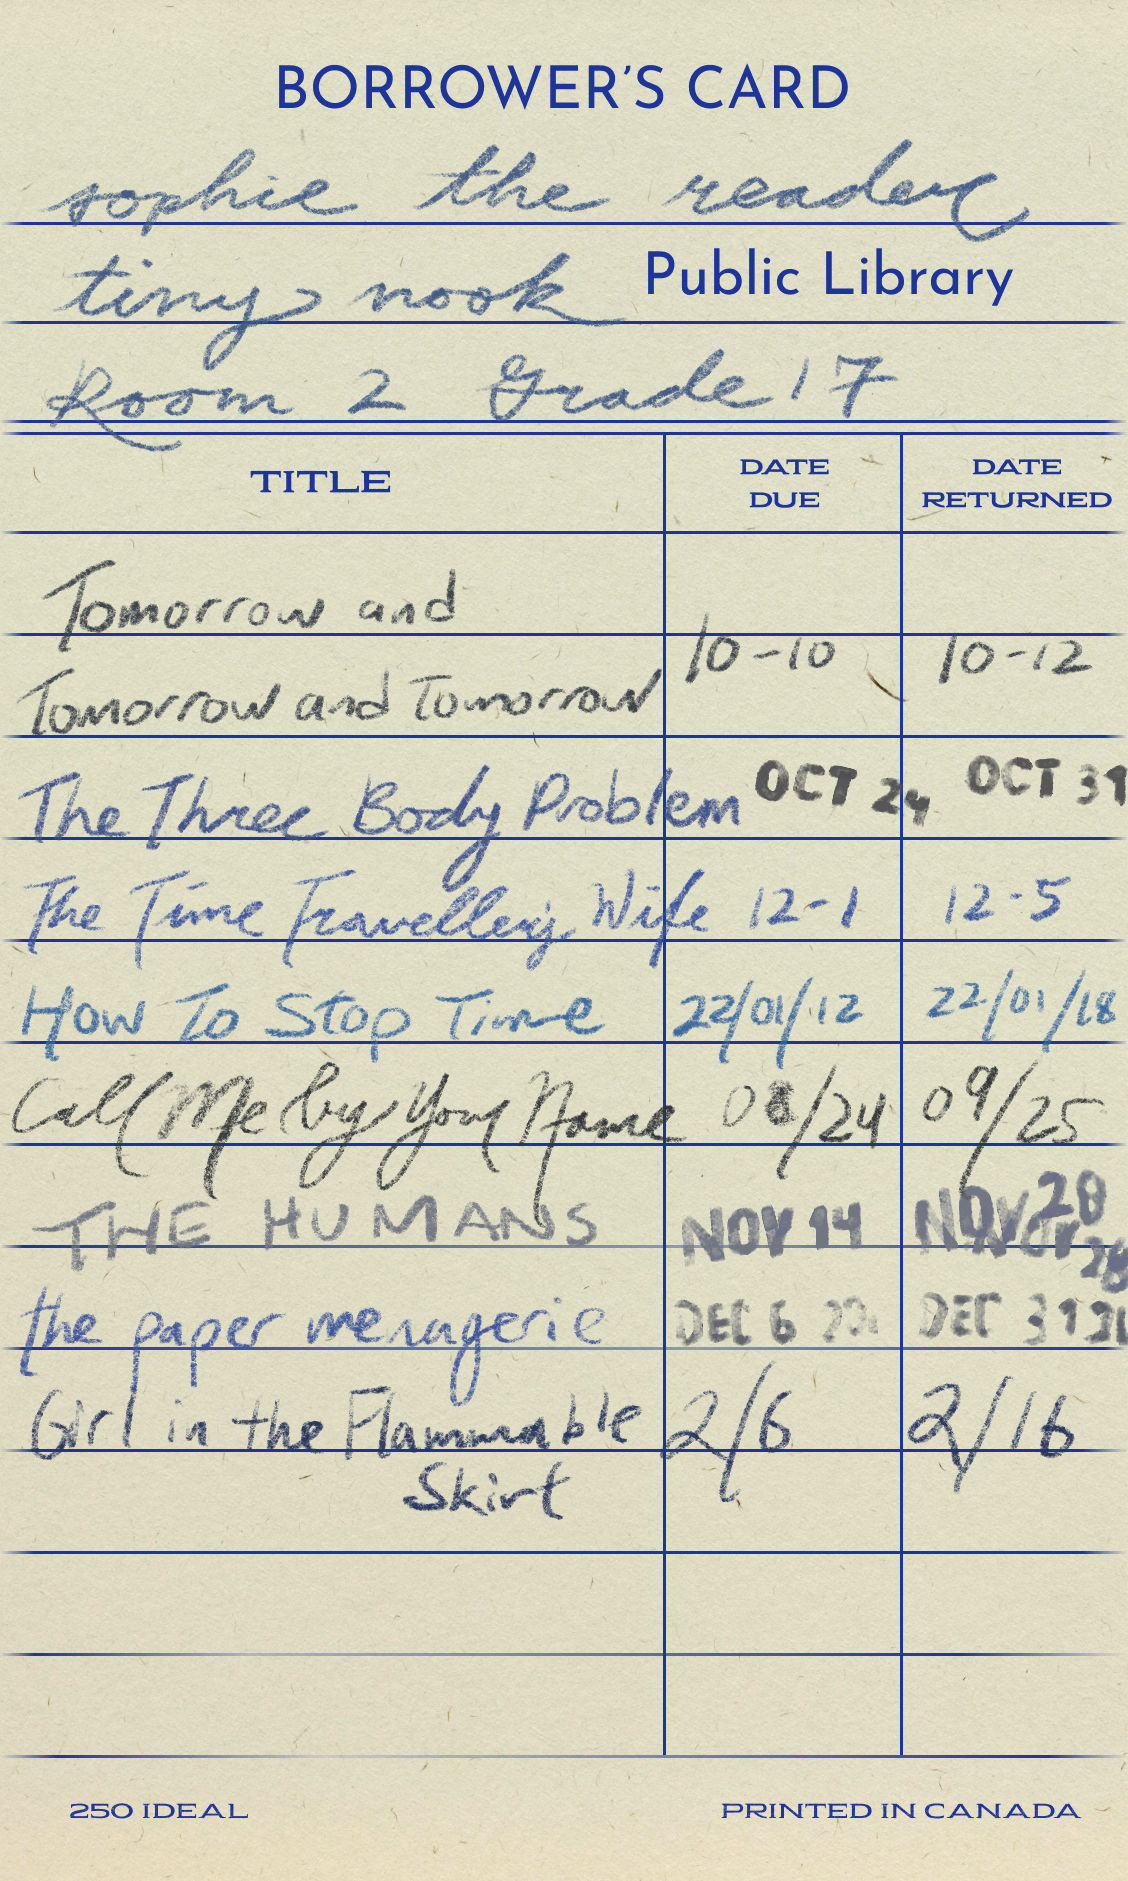 BORROWER'S CARD
sophie the reader
tiny nook Public Library
Room 2 Grade 17
TITLE DATE DUE DATE RETURNED
Tomorrow and
Tomorrow and Tomorrow 10-10 10-12
The Three Body Problem OCT 24 OCT 31
The Time Traveller's Wife 12-1 12-5
How To Stop Time 22/01/12 22/01/18
Call Me by Your Name 08/24 09/25
THE HUMANS NOV 14 NOV 28
the paper menagerie DEC 6 DEC 31
Girl in the Flammable 2/6 2/16
Skirt
250 IDEAL PRINTED IN CANADA